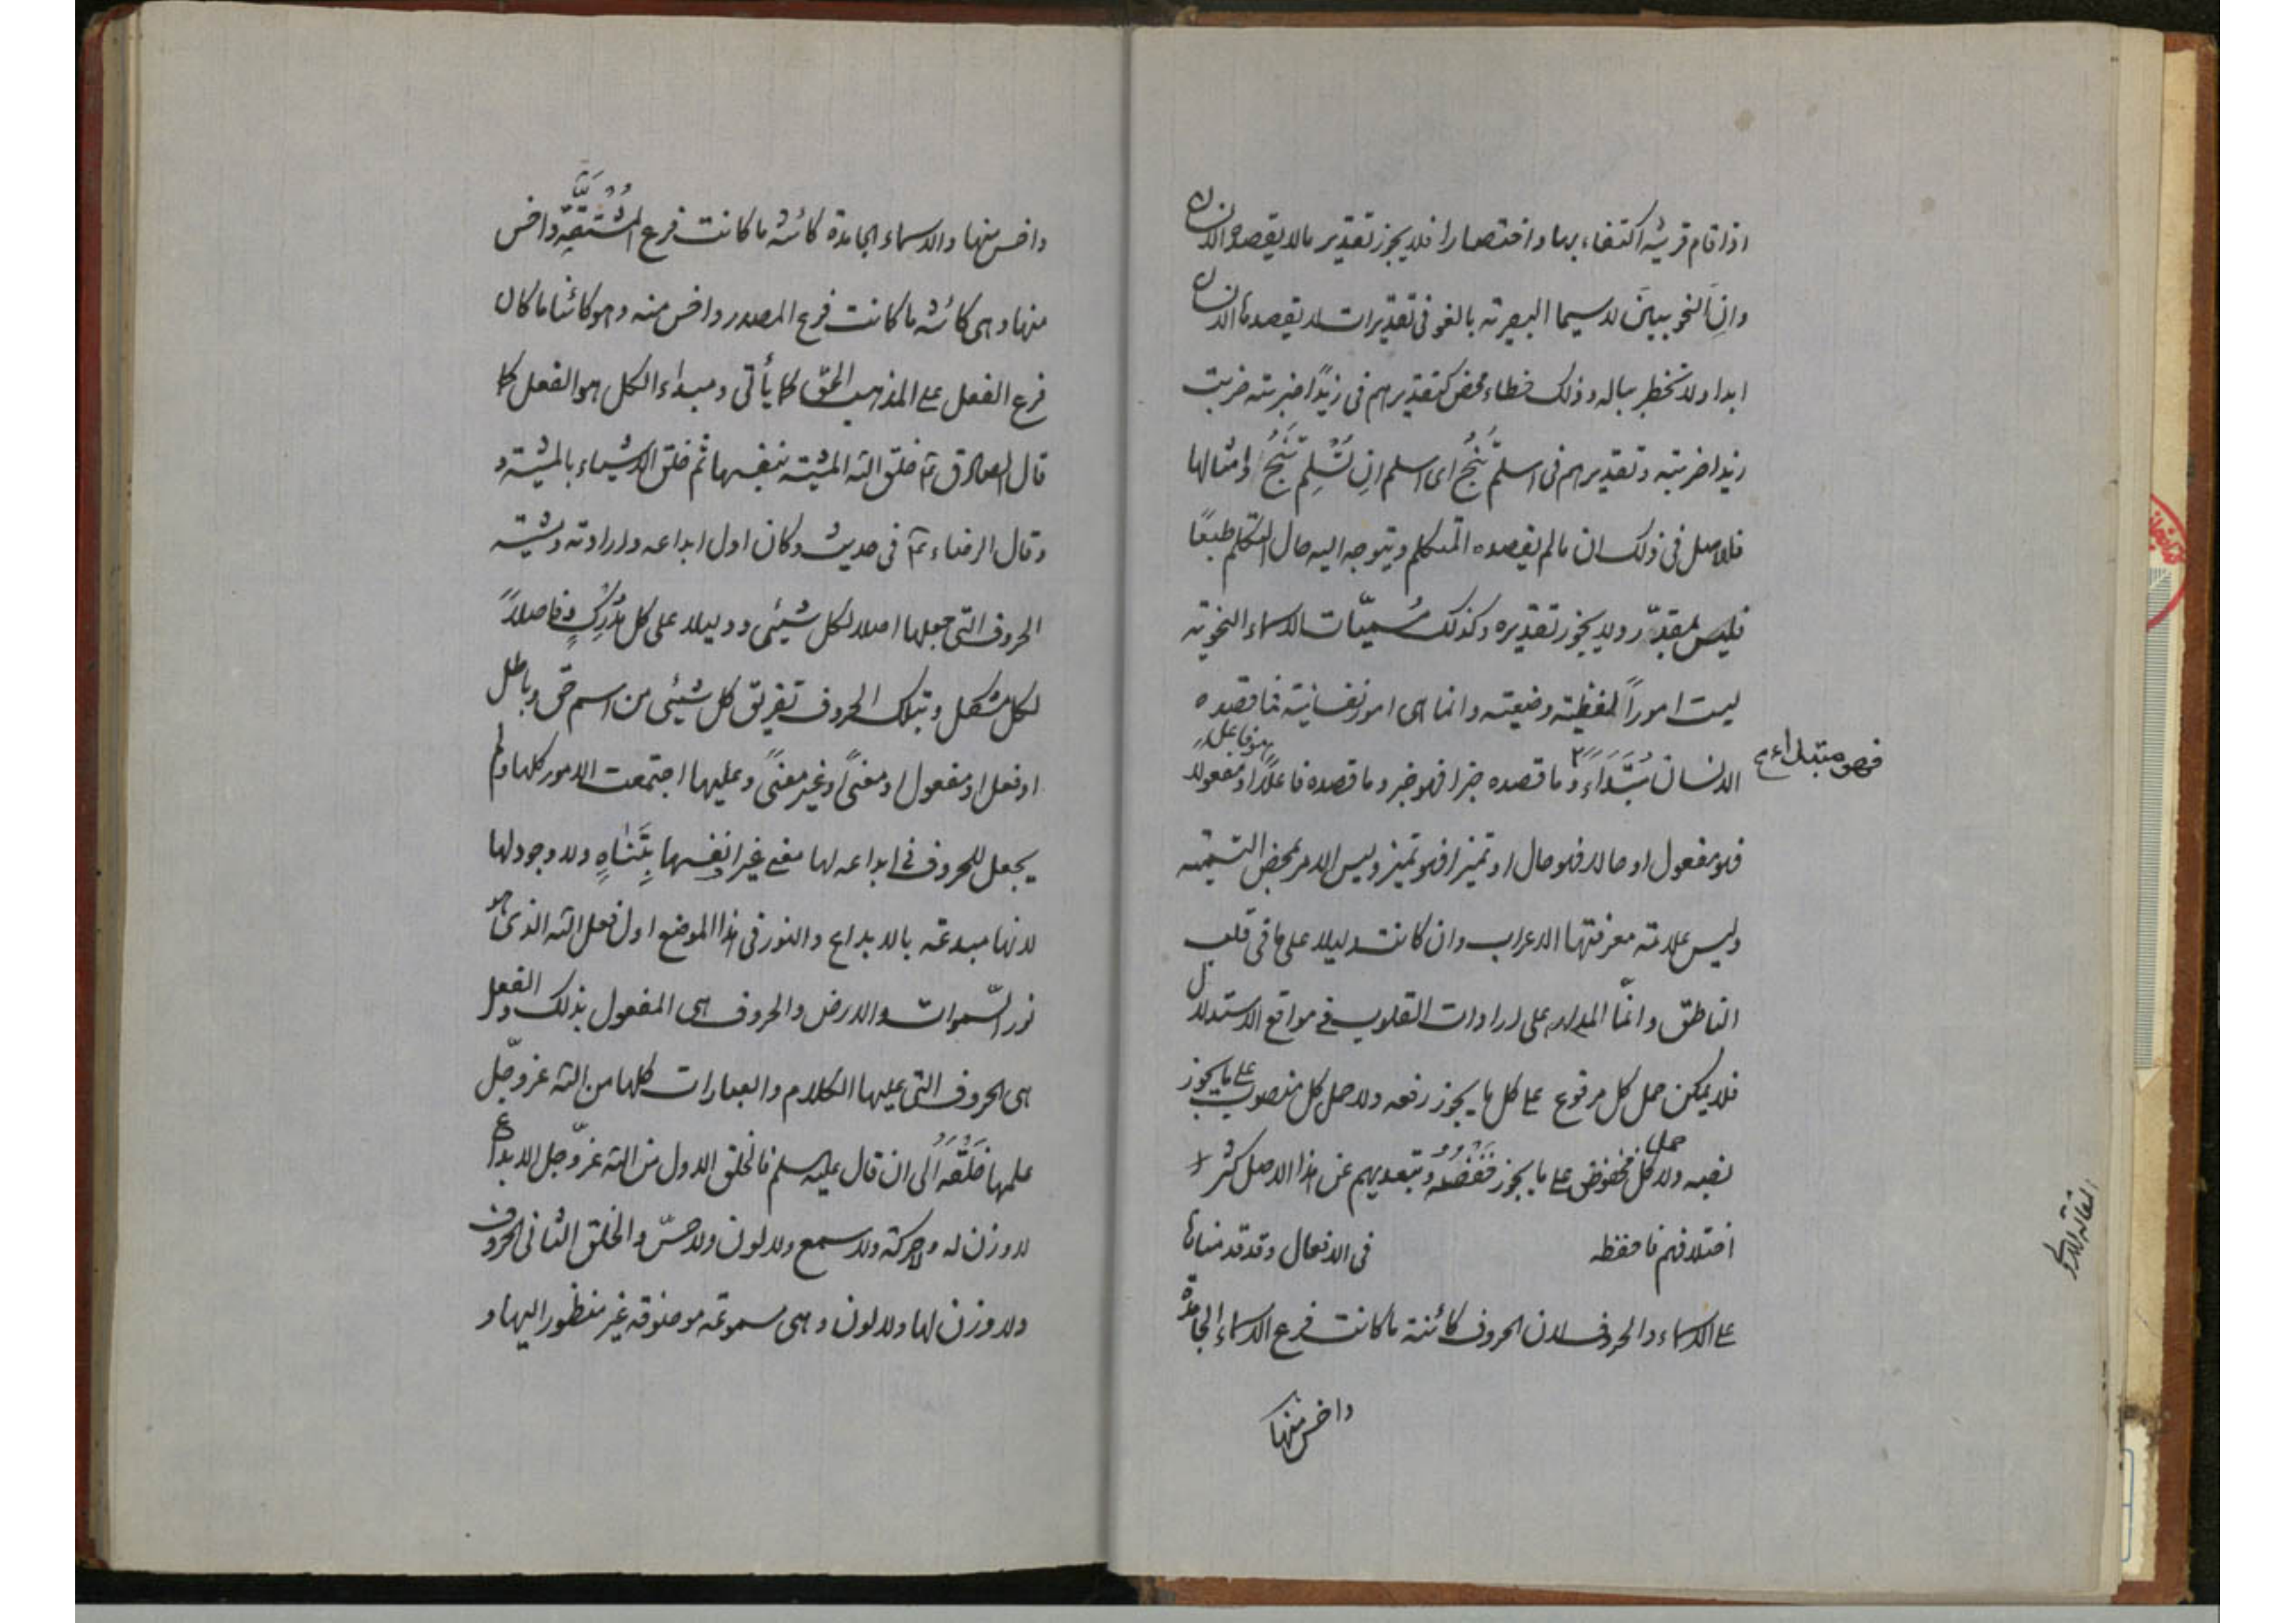 اذا قام قرينة اكتفاء بها واختصارا فلا يجوز تقدير مالا يقصده الانسان
وان النحويين لا سيما البصرية بالغو فى تقديرات لا يقصدها الانسان
ابدا ولا تخطر بباله وذلك خطاء محض كتقديرهم فى زيدًا ضربته ضربت
زيدا ضربته وتقديرهم فى اسلم تَنْجُ اى اسلم اِن تُسْلِم تَنْجُ وامثالها
فالاصل فى ذلك ان مالم يقصده المتكلم ويتوجه اليه حال التكلم طبعًا
فليس بمقدّر ولا يجوز تقديره وكذلك مُسمّيات الاسماء النحوية
ليست اموراً لفظية وضعية وانما هى امور نفسانية فما قصده
الانسان مُبْتَدَاءً فهو مبتداء وما قصده خبرا فهو خبر وما قصده فاعلًا فهو فاعل او مفعولا
فهو مفعول او حالا فهو حال او تميزا فهو تميز وليس الامر بمحض التسمية
وليس علامة معرفتها الاعراب وان كانت دليلا على ما فى قلب
الناطق وانّما المدار على ارادات القلوب فى مواقع الاستدلال
فلا يمكن حمل كل مرفوع على كل ما يجوز رفعه ولا حمل كل منصوب على ما يجوز
نصبه ولا حمل كل مخفوض على ما يجوز خَفْضُهُ وبتعديهم عن هذا الاصل كثر
اختلافهم فاحفظه فى الافعال وقد قدمناها
على الاسماء والحروف لان الحروف كائنة ما كانت فرع الاسماء الجامدة
واخس منها
واخس منها والاسماء الجامدة كائنة ما كانت فرع المُشْتَقَّة واخس
منها وهى كائنة ما كانت فرع المصدر واخس منه وهو كائنا ما كان
فرع الفعل على المذهب الحق كما يأتى ومبداء الكل هو الفعل كما
قال الصادق ع خلق الله المشية بنفسها ثم خلق الاشياء بالمشية و
وقال الرضاء ع فى حديث وكان اول ابداعه وارادته ومشيته
الحروف التى جعلها اصلا لكل شيئى ودليلا على كل مُدْرَكٍ وفاصلاً
لكل مشكل وبتلك الحروف تفريق كل شيئى من اسم حق وباطل
او فعل او مفعول او معنىً او غير معنىً وعليها اجتمعت الامور كلها ولم
يجعل للحروف فى ابداعه لها معنى غير انفسها بِتَنَاهٍ ولا وجود لها
لانها مبدعة بالابداع والنور فى هذا الموضع اول فعل الله الذى هو
نور السّموات والارض والحروف هى المفعول بذلك الفعل و
هى الحروف التى عليها الكلام والعبارات كلها من الله عز وجّل
علمها خَلْقَهُ الى ان قال عليه السلم فالخلق الاول من الله عزّ وجل الابداع
لا وزن له ولا حركة ولا سمع ولا لون ولا حسّ والخلق الثانى الحروف
ولا وزن لها ولا لون وهى مسموعة موصوفة غير منظور اليها و